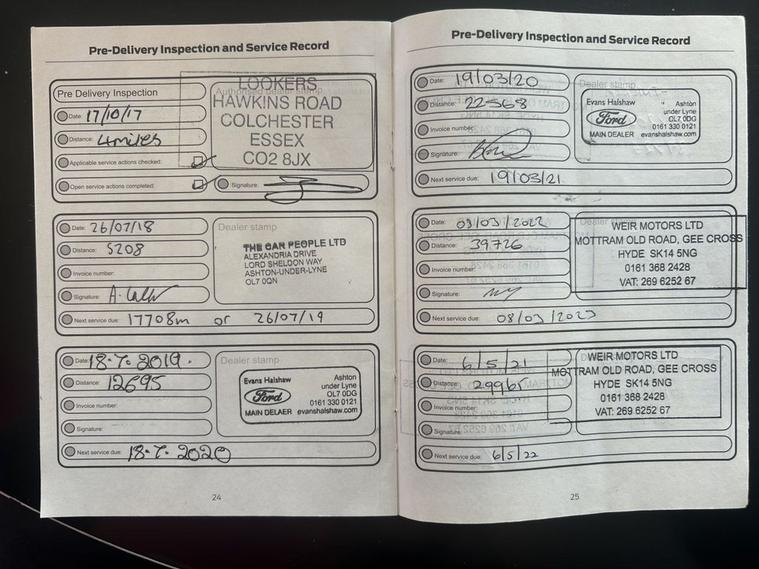 Pre-Delivery Inspection and Service Record
Pre Delivery Inspection
Date: 17/10/17
Distance: 4 miles
Applicable service actions checked:
Open service actions completed:
Authorised dealer stamp
LOOKERS
HAWKINS ROAD
COLCHESTER
ESSEX
CO2 8JX
Signature:
Date: 26/07/18
Distance: 5208
Invoice number:
Signature:
Dealer stamp
THE CAR PEOPLE LTD
ALEXANDRIA DRIVE
LORD SHELDON WAY
ASHTON-UNDER-LYNE
OL7 0QN
Next service due: 17708m or 26/07/19
Date: 18.7.2019.
Distance: 12695
Invoice number:
Signature:
Dealer stamp
Evans Halshaw
Ford
MAIN DELAER
Ashton
under Lyne
OL7 0DG
0161 330 0121
evanshalshaw.com
Next service due: 18.7.2020
24
Pre-Delivery Inspection and Service Record
Date: 19/03/20
Distance: 22568
Invoice number:
Signature:
Dealer stamp
Evans Halshaw
Ford
MAIN DEALER
Ashton
under Lyne
OL7 0DG
0161 330 0121
evanshalshaw.com
Next service due: 19/03/21
Date: 09/03/2022
Distance: 39726
Invoice number:
Signature:
WEIR MOTORS LTD
MOTTRAM OLD ROAD, GEE CROSS
HYDE SK14 5NG
0161 368 2428
VAT: 269 6252 67
Next service due: 08/03/2023
Date: 6/5/21
Distance: 29965
Invoice number:
Signature:
WEIR MOTORS LTD
MOTTRAM OLD ROAD, GEE CROSS
HYDE SK14 5NG
0161 368 2428
VAT: 269 6252 67
Next service due: 6/5/22
25